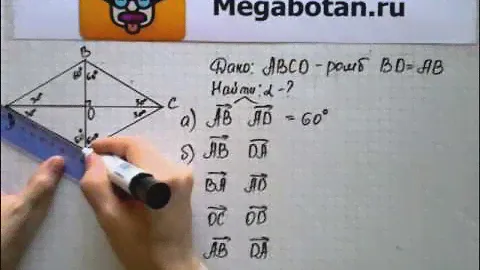 Megabotan.ru
Дано: ABCD - ромб BD = AB
Найти: α - ?
а) AB AD = 60°
б) AB DA
BA AD
OC OD
AB DA
B
60° 60°
30° 30°
30° O 30° C
60° 60°